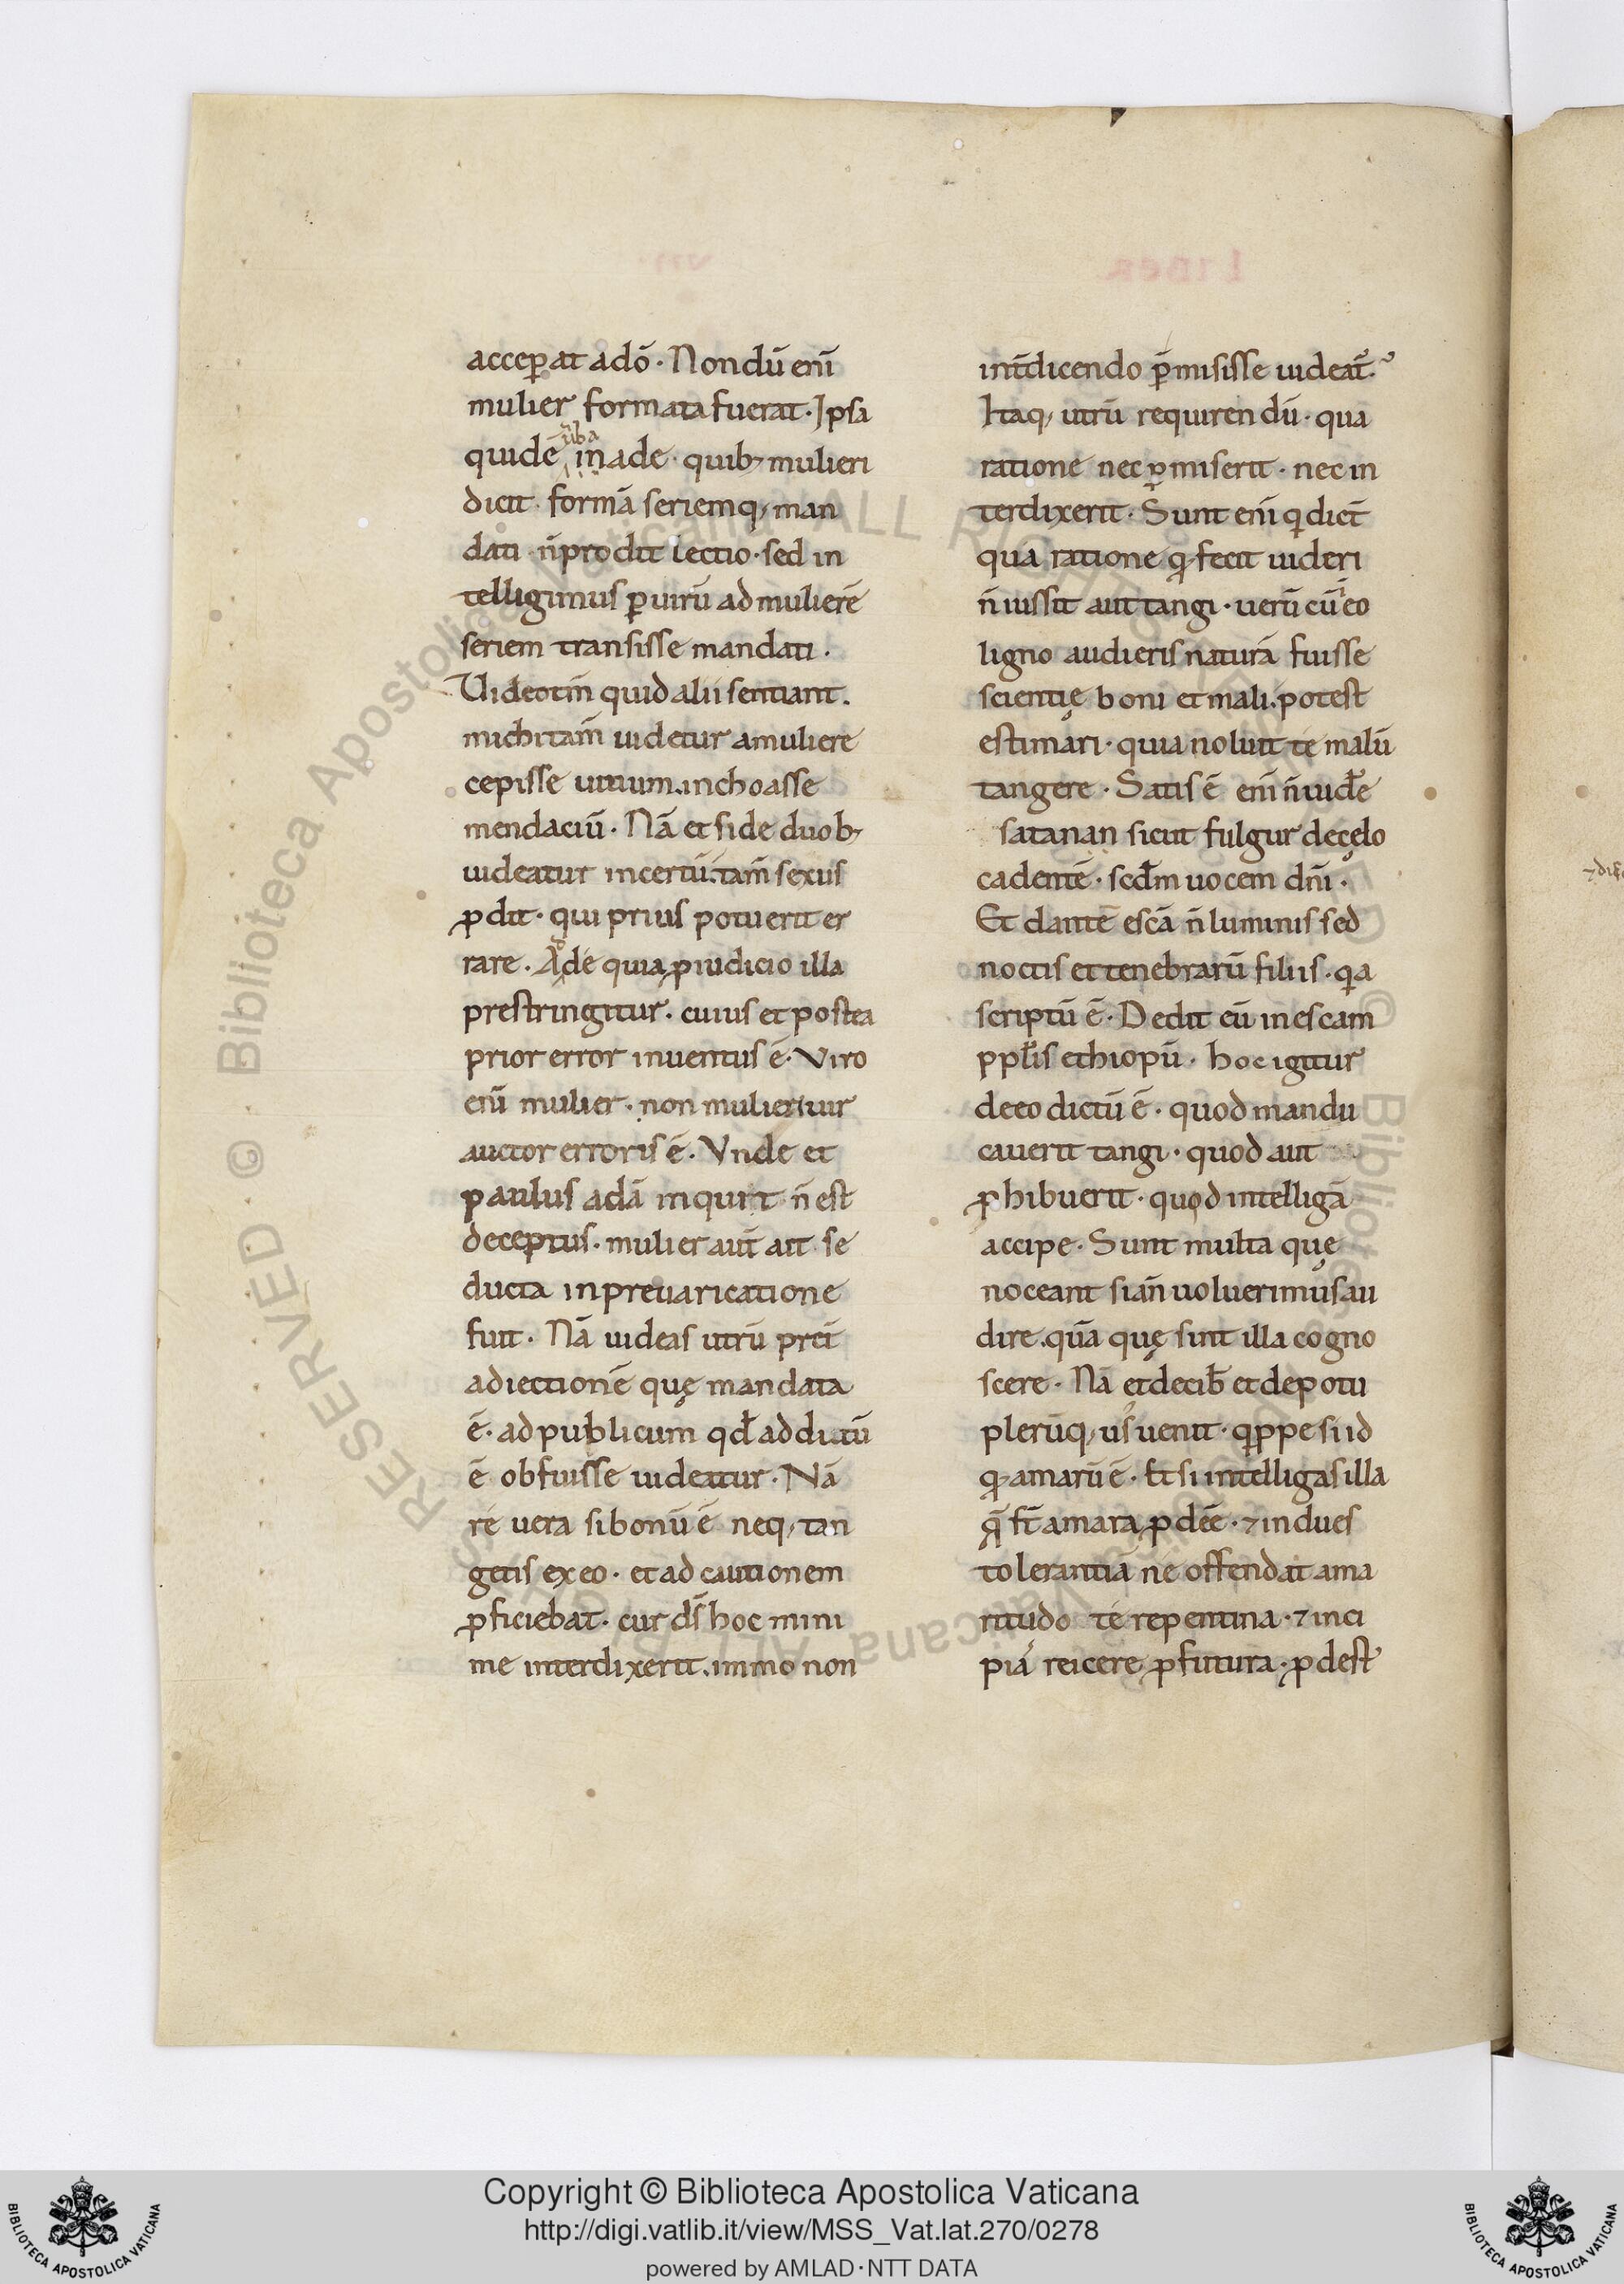 acceꝑat adō · Nondū enī
mulier formata fuerat · Ipsa
quidē ūba inade · quib; mulieri
dicit · formā seriemq; man
dati · n̄ prodit lectio · sed in
telligimus ꝑ uirū ad mulierē
seriem transisse mandati ·
Uideotm̄ quid alii sentiant .
michi tam̄ uidetur amuliere
cepisse uitium . inchoasse
mendaciū · Nā et si de duob;
uideatur incertū . tam̄ sexus
ꝓdit · qui prius potuerit er
rare . Adę quia ꝓiudicio illa
prestringitur . cuius et postea
prior error inuentus ē · Viro
enī mulier · non mulieri uir
auctor erroris ē . Vnde et
paulus adā inquit n̄ est
deceptus . mulier aut̄ ait se
ducta inpreuaricatione
fuit . Nā uideas utrū preī
adiectionē quę mandata
ē · ad publicum qđ addictū
ē obfuisse uideatur · Nā
re uera si bonū ē neq; tan
getis ex eo · et ad cautionem
ꝓficiebat · cur ds̄ hoc mini
me interdixerit . immo non
int̄dicendo p̄misisse uideat̄ ·
Itaq; utrū requirendū · qua
ratione nec ꝑmiserit · nec in
terdixerit · Sunt enī qi dict̄
qua ratione q; fecit uideri
n̄ iussit aut tangi · uerū cū i eo
ligno audieris naturā fuisse
scientię boni et mali . potest
estimari · quia noluit te malū
tangere · Satis ē enī n̄ uidēe
satanan sicut fulgur decęlo
cadentē · scđm uocem dn̄i ·
Et dantē escā n̄ luminis sed
noctis et tenebrarū filiis · qia
scriptū ē · Dedit eū inescam
ppłis ethiopū · hoc igitur
deeo dictū ē · quod mandu
cauerit tangi · quod aut
ꝓhibuerit · quod intelligā
accipe · Sunt multa quę
noceant si an̄ uoluerimus au
dire . quā quę sint illa cogno
scere · Nā et decib̄ et depotu
plerūq; us' uenit · qippe si id
q; amarū ē . Et si intelligas illa
q̄ st̄ amara ꝓdēe · ⁊ indues
tolerantiā ne offendat ama
ritudo te repentina · ⁊ inci
pia' reicere ꝓfutura · ꝓdest
LIBER
VII
Copyright © Biblioteca Apostolica Vaticana
http://digi.vatlib.it/view/MSS_Vat.lat.270/0278
powered by AMLAD · NTT DATA
BIBLIOTECA APOSTOLICA VATICANA
BIBLIOTECA APOSTOLICA VATICANA